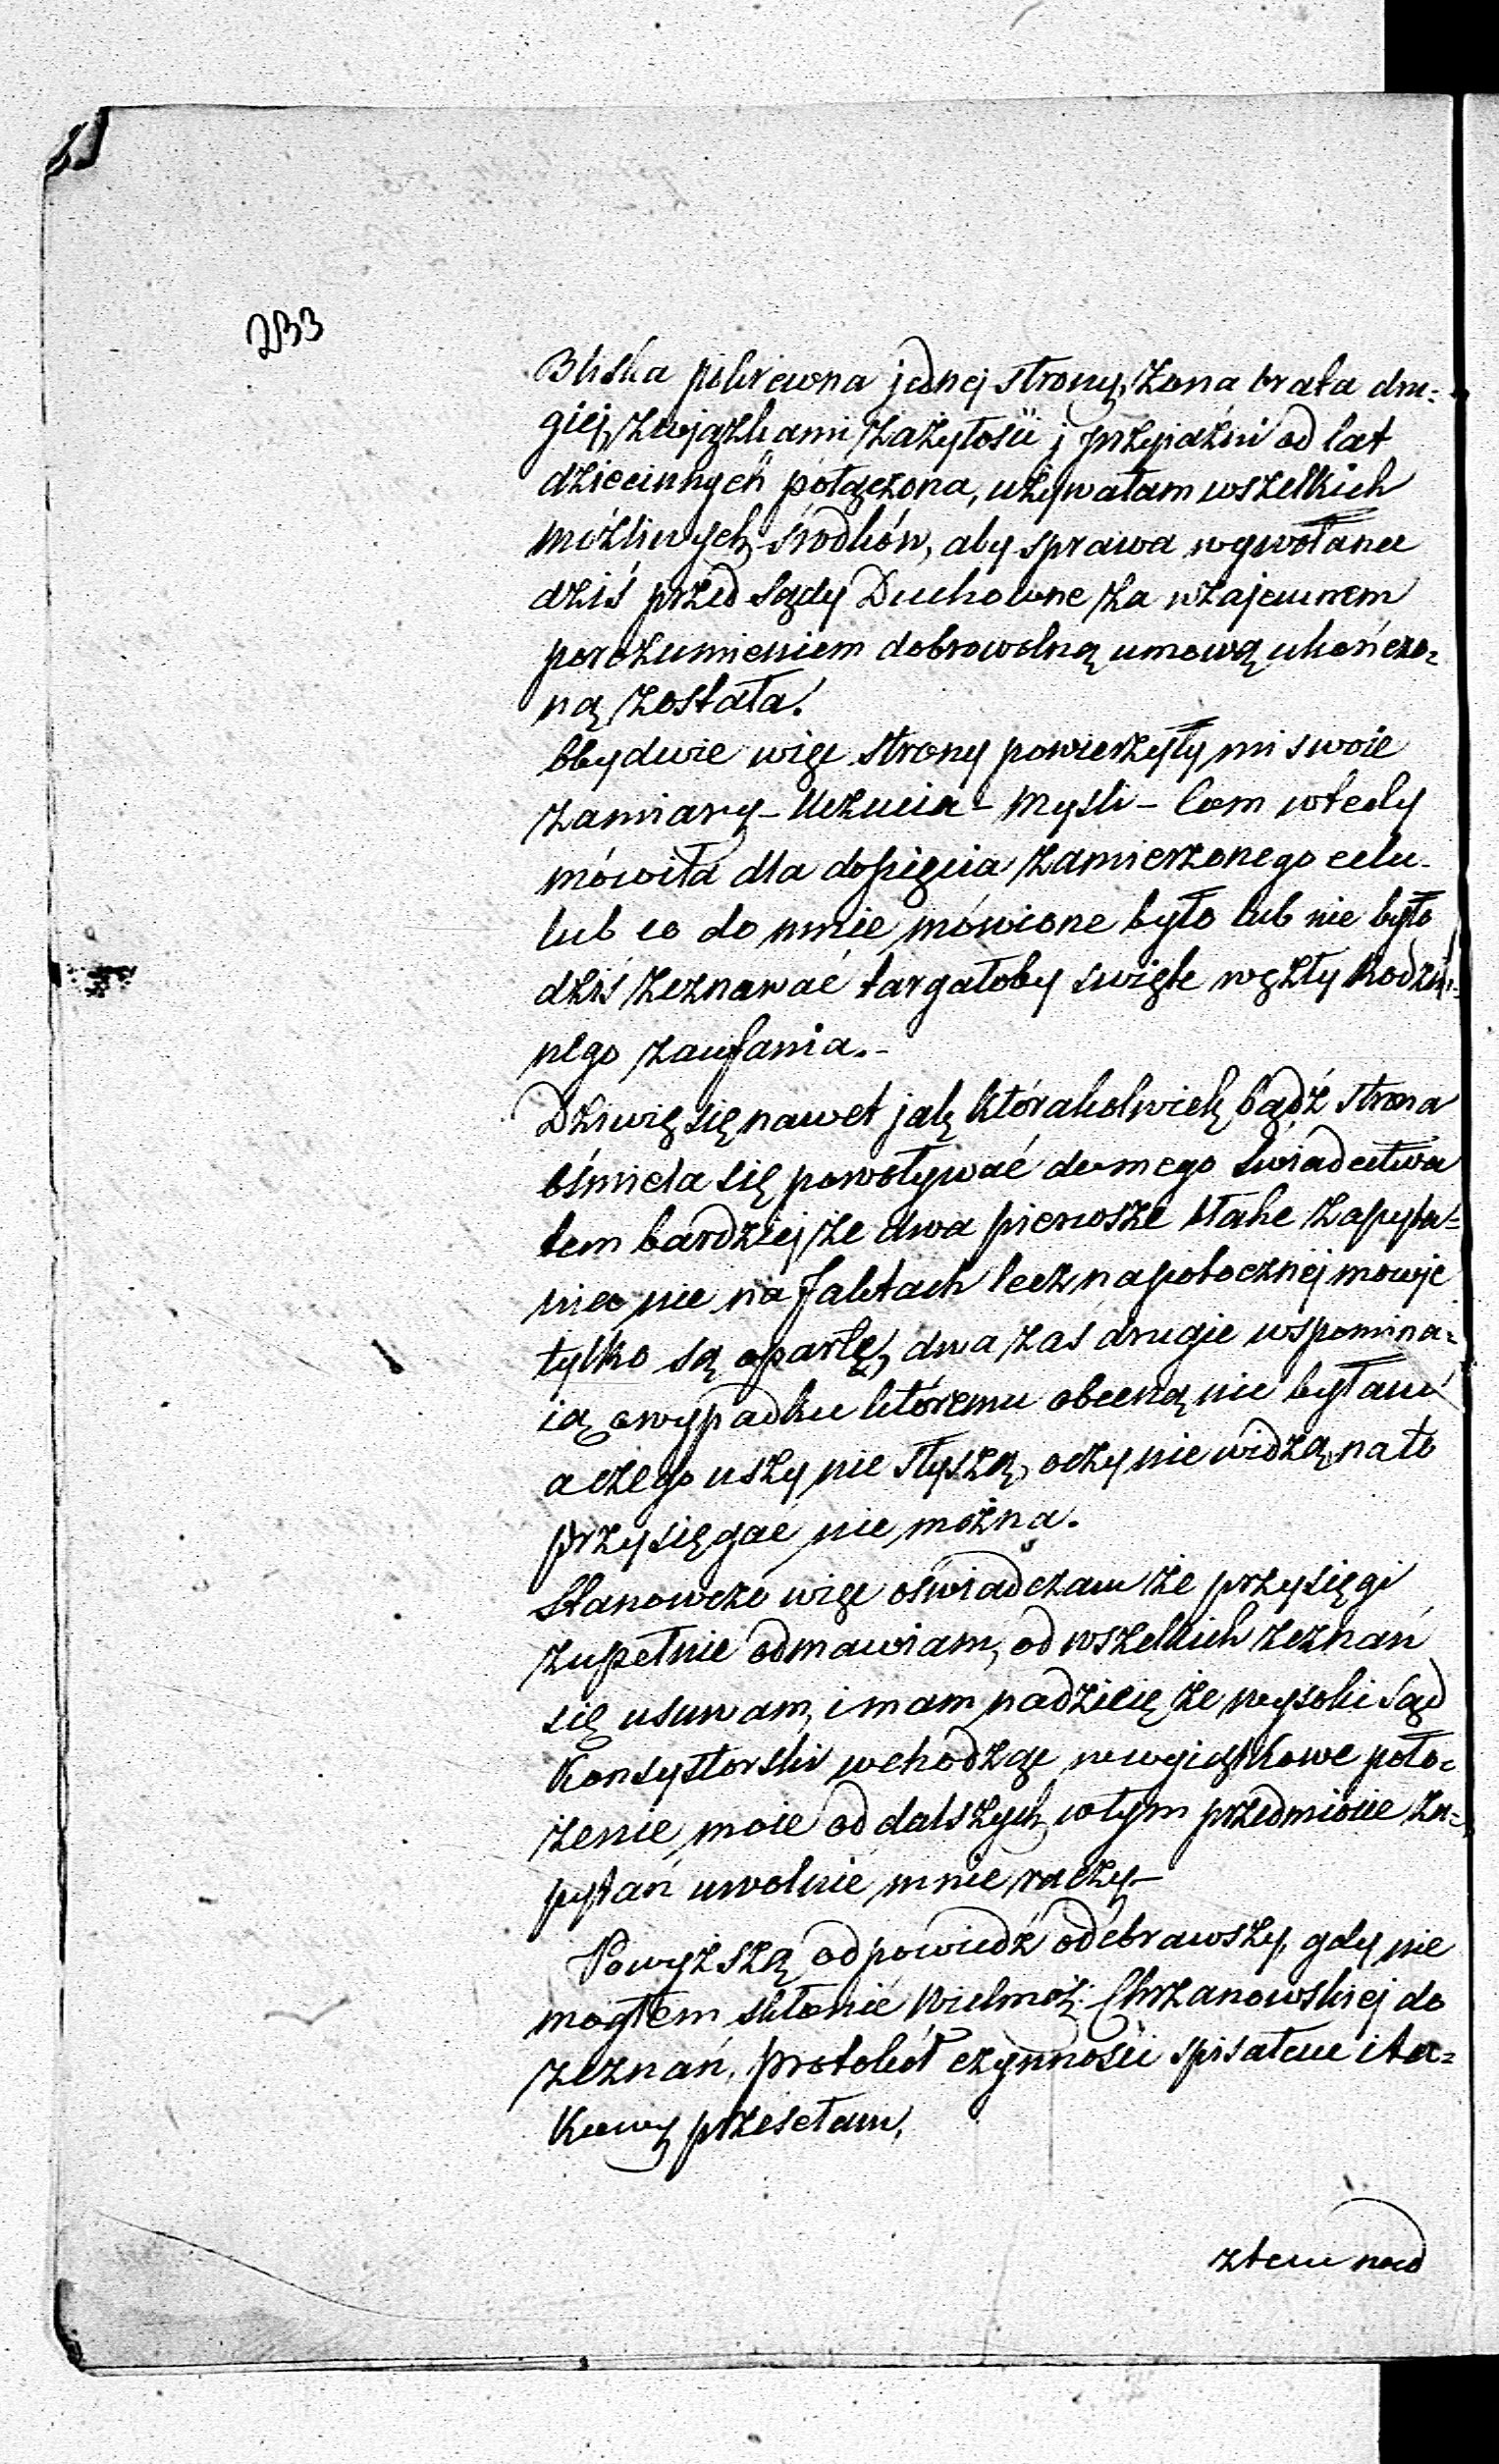 233
Bliska pokrewna jednej strony, żona brata dru=
giej, związkami zażyłości i przyjaźni od lat
dziecinnych połączona, używałam wszelkich
możliwych środków, aby sprawa wywołana
dziś przed Sądy Duchowne za wzajemnem
porozumieniem dobrowolną umową ukończo=
ną została.
Obydwie więc strony powierzyły mi swoie
zamiary – Uczucia – Myśli – Com wtedy
mówiła dla dopięcia zamierzonego celu
lub co do mnie mówione było lub nie było
dziś zeznawać targałoby święte węzły Rodzin=
nego zaufania. –
Dziwię się nawet jak którakolwiek bądź strona
ośmiela się powoływać do mego świadectwa
tem bardziej że dwa pierwsze takie zapyta=
nia nie na faktach lecz na potocznej mowie
tylko są oparte, dwa zaś drugie wspomina=
ią o wypadku któremu obecną nie byłam
a czego uszy nie słyszą, oczy nie widzą, na to
przysięgać nie można.
Stanowczo więc oświadczam że przysięgi
zupełnie odmawiam, od wszelkich zeznań
się usuwam, i mam nadzieię że wysoki Sąd
Konsystorski wchodząc w wyjątkowe poło=
żenie moie od dalszych w tym przedmiocie za=
pytań uwolnić mnie raczy –
Powyższą odpowiedź odebrawszy, gdy nie
mogłem skłonić Wielmoż: Chrzanowskiej do
zeznań, protokół czynności spisałem i ta=
kowy przesełam,
z tem nad